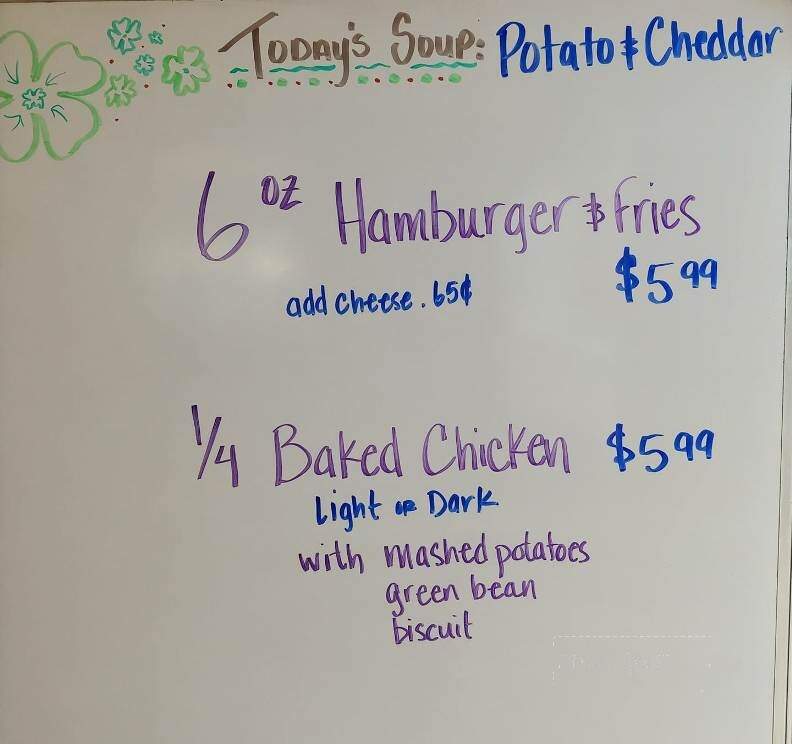 Today's Soup: Potato & Cheddar
6 oz Hamburger & Fries
add cheese .65¢ $5 99
1/4 Baked Chicken $5 99
Light or Dark
with mashed potatoes
green bean
biscuit